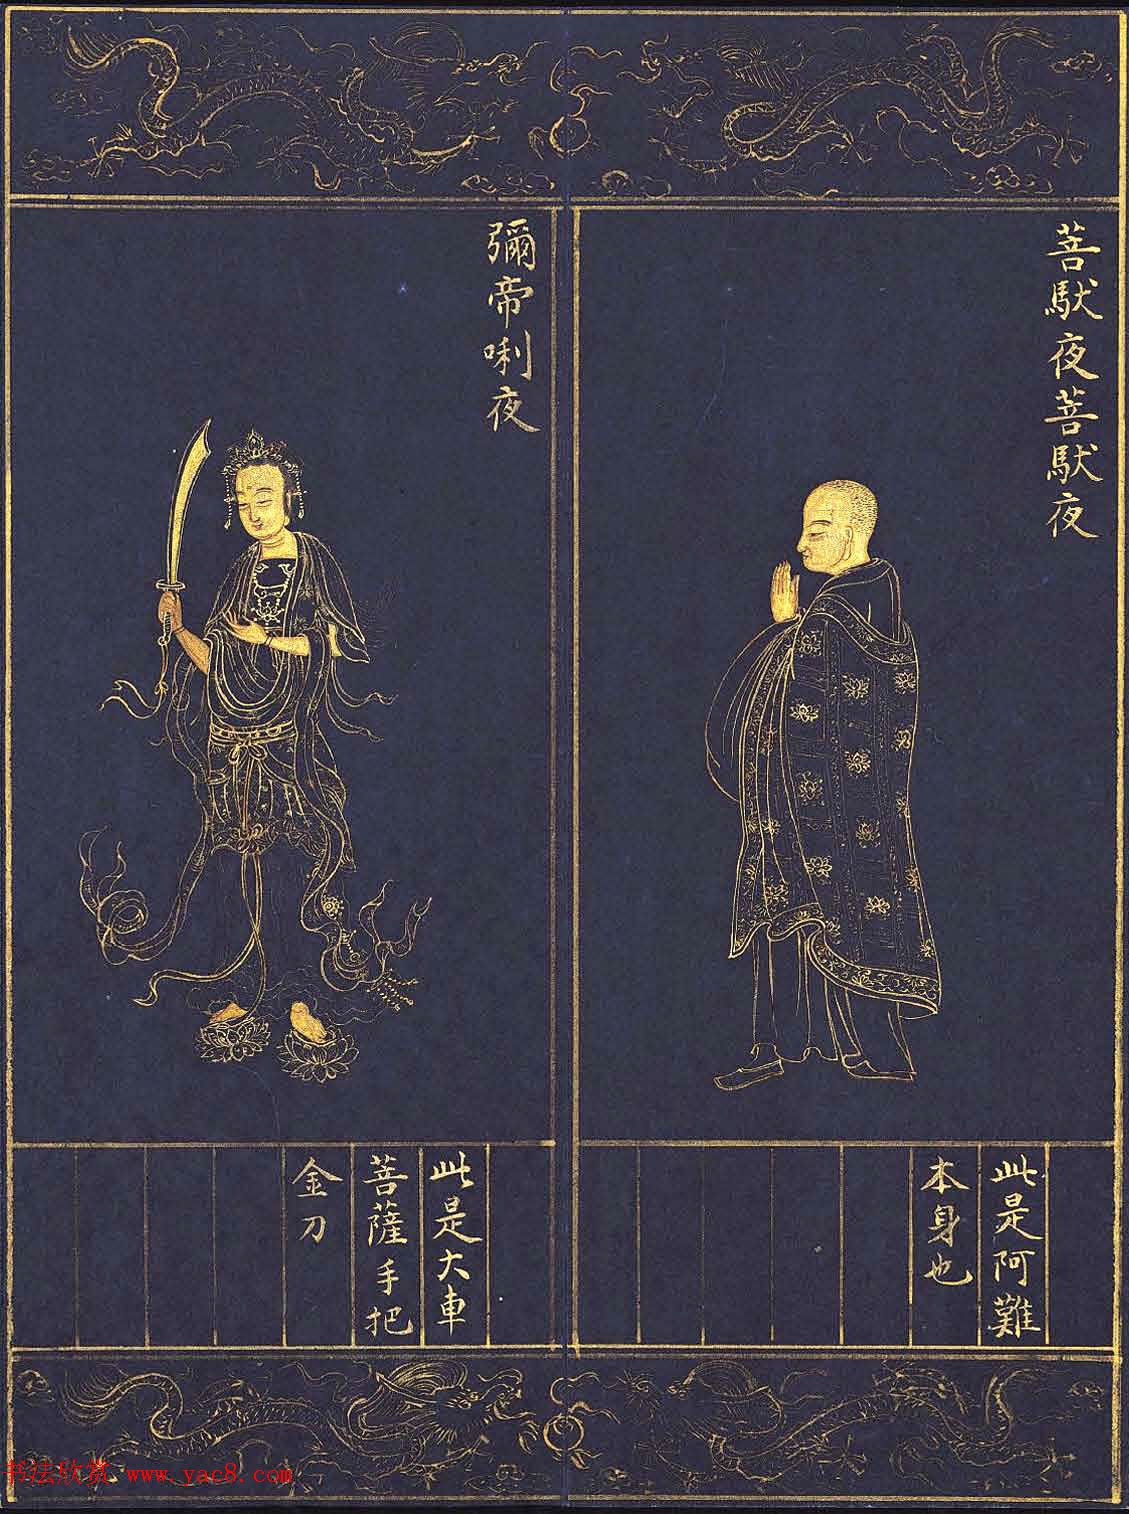 菩馱夜菩馱夜
此是阿難
本身也
彌帝唎夜
此是大車
菩薩手把
金刀
书法欣赏 www.yac8.com